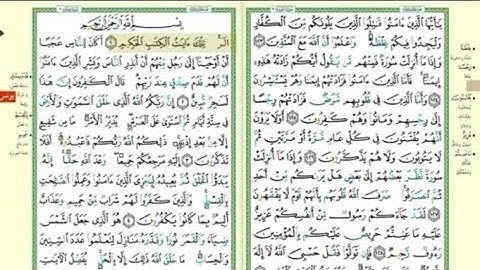 يَأَيُّهَا الَّذِينَ ءَامَنُوا قَتِلُوا الَّذِينَ يَلُونَكُم مِّنَ الْكُفَّارِ
وَلْيَجِدُوا فِيكُمْ غِلْظَةً وَاعْلَمُوا أَنَّ اللَّهَ مَعَ الْمُتَّقِينَ ١٢٣
وَإِذَا مَا أُنزِلَتْ سُورَةٌ فَمِنْهُم مَّن يَقُولُ أَيُّكُمْ زَادَتْهُ هَذِهِ
إِيمَنًا فَأَمَّا الَّذِينَ ءَامَنُوا فَزَادَتْهُمْ إِيمَنًا وَهُمْ يَسْتَبْشِرُونَ ١٢٤
وَأَمَّا الَّذِينَ فِي قُلُوبِهِم مَّرَضٌ فَزَادَتْهُمْ رِجْسًا إِلَى
رِجْسِهِمْ وَمَاتُوا وَهُمْ كَفِرُونَ ١٢٥ أَوَلَا يَرَوْنَ
أَنَّهُمْ يُفْتَنُونَ فِي كُلِّ عَامٍ مَّرَّةً أَوْ مَرَّتَيْنِ ثُمَّ
لَا يَتُوبُونَ وَلَا هُمْ يَذَّكَّرُونَ ١٢٦ وَإِذَا مَا أُنزِلَتْ
سُورَةٌ نَّظَرَ بَعْضُهُمْ إِلَى بَعْضٍ هَلْ يَرَىكُم مِّنْ أَحَدٍ
ثُمَّ انصَرَفُوا صَرَفَ اللَّهُ قُلُوبَهُم بِأَنَّهُمْ قَوْمٌ لَّا يَفْقَهُونَ ١٢٧
لَقَدْ جَاءَكُمْ رَسُولٌ مِّنْ أَنفُسِكُمْ عَزِيزٌ
عَلَيْهِ مَا عَنِتُّمْ حَرِيصٌ عَلَيْكُم بِالْمُؤْمِنِينَ
رَءُوفٌ رَّحِيمٌ ١٢٨ فَإِن تَوَلَّوْا فَقُلْ حَسْبِيَ اللَّهُ
بِسْمِ اللَّهِ الرَّحْمَنِ الرَّحِيمِ
الر تِلْكَ ءَايَتُ الْكِتَبِ الْحَكِيمِ ١ أَكَانَ لِلنَّاسِ عَجَبًا
أَنْ أَوْحَيْنَا إِلَى رَجُلٍ مِّنْهُمْ أَنْ أَنذِرِ النَّاسَ وَبَشِّرِ الَّذِينَ ءَامَنُوا
أَنَّ لَهُمْ قَدَمَ صِدْقٍ عِندَ رَبِّهِمْ قَالَ الْكَفِرُونَ إِنَّ هَذَا
لَسَحِرٌ مُّبِينٌ ٢ إِنَّ رَبَّكُمُ اللَّهُ الَّذِي خَلَقَ السَّمَوَتِ وَالْأَرْضَ
فِي سِتَّةِ أَيَّامٍ ثُمَّ اسْتَوَى عَلَى الْعَرْشِ يُدَبِّرُ الْأَمْرَ مَا مِن شَفِيعٍ
إِلَّا مِن بَعْدِ إِذْنِهِ ذَلِكُمُ اللَّهُ رَبُّكُمْ فَاعْبُدُوهُ أَفَلَا
تَذَكَّرُونَ ٣ إِلَيْهِ مَرْجِعُكُمْ جَمِيعًا وَعْدَ اللَّهِ حَقًّا إِنَّهُ
يَبْدَؤُا الْخَلْقَ ثُمَّ يُعِيدُهُ لِيَجْزِيَ الَّذِينَ ءَامَنُوا وَعَمِلُوا الصَّلِحَتِ
بِالْقِسْطِ وَالَّذِينَ كَفَرُوا لَهُمْ شَرَابٌ مِّنْ حَمِيمٍ وَعَذَابٌ
أَلِيمٌ بِمَا كَانُوا يَكْفُرُونَ ٤ هُوَ الَّذِي جَعَلَ الشَّمْسَ
ضِيَاءً وَالْقَمَرَ نُورًا وَقَدَّرَهُ مَنَازِلَ لِتَعْلَمُوا عَدَدَ السِّنِينَ
وَالْحِسَابَ مَا خَلَقَ اللَّهُ ذَلِكَ إِلَّا بِالْحَقِّ يُفَصِّلُ الْآيَتِ
يونس